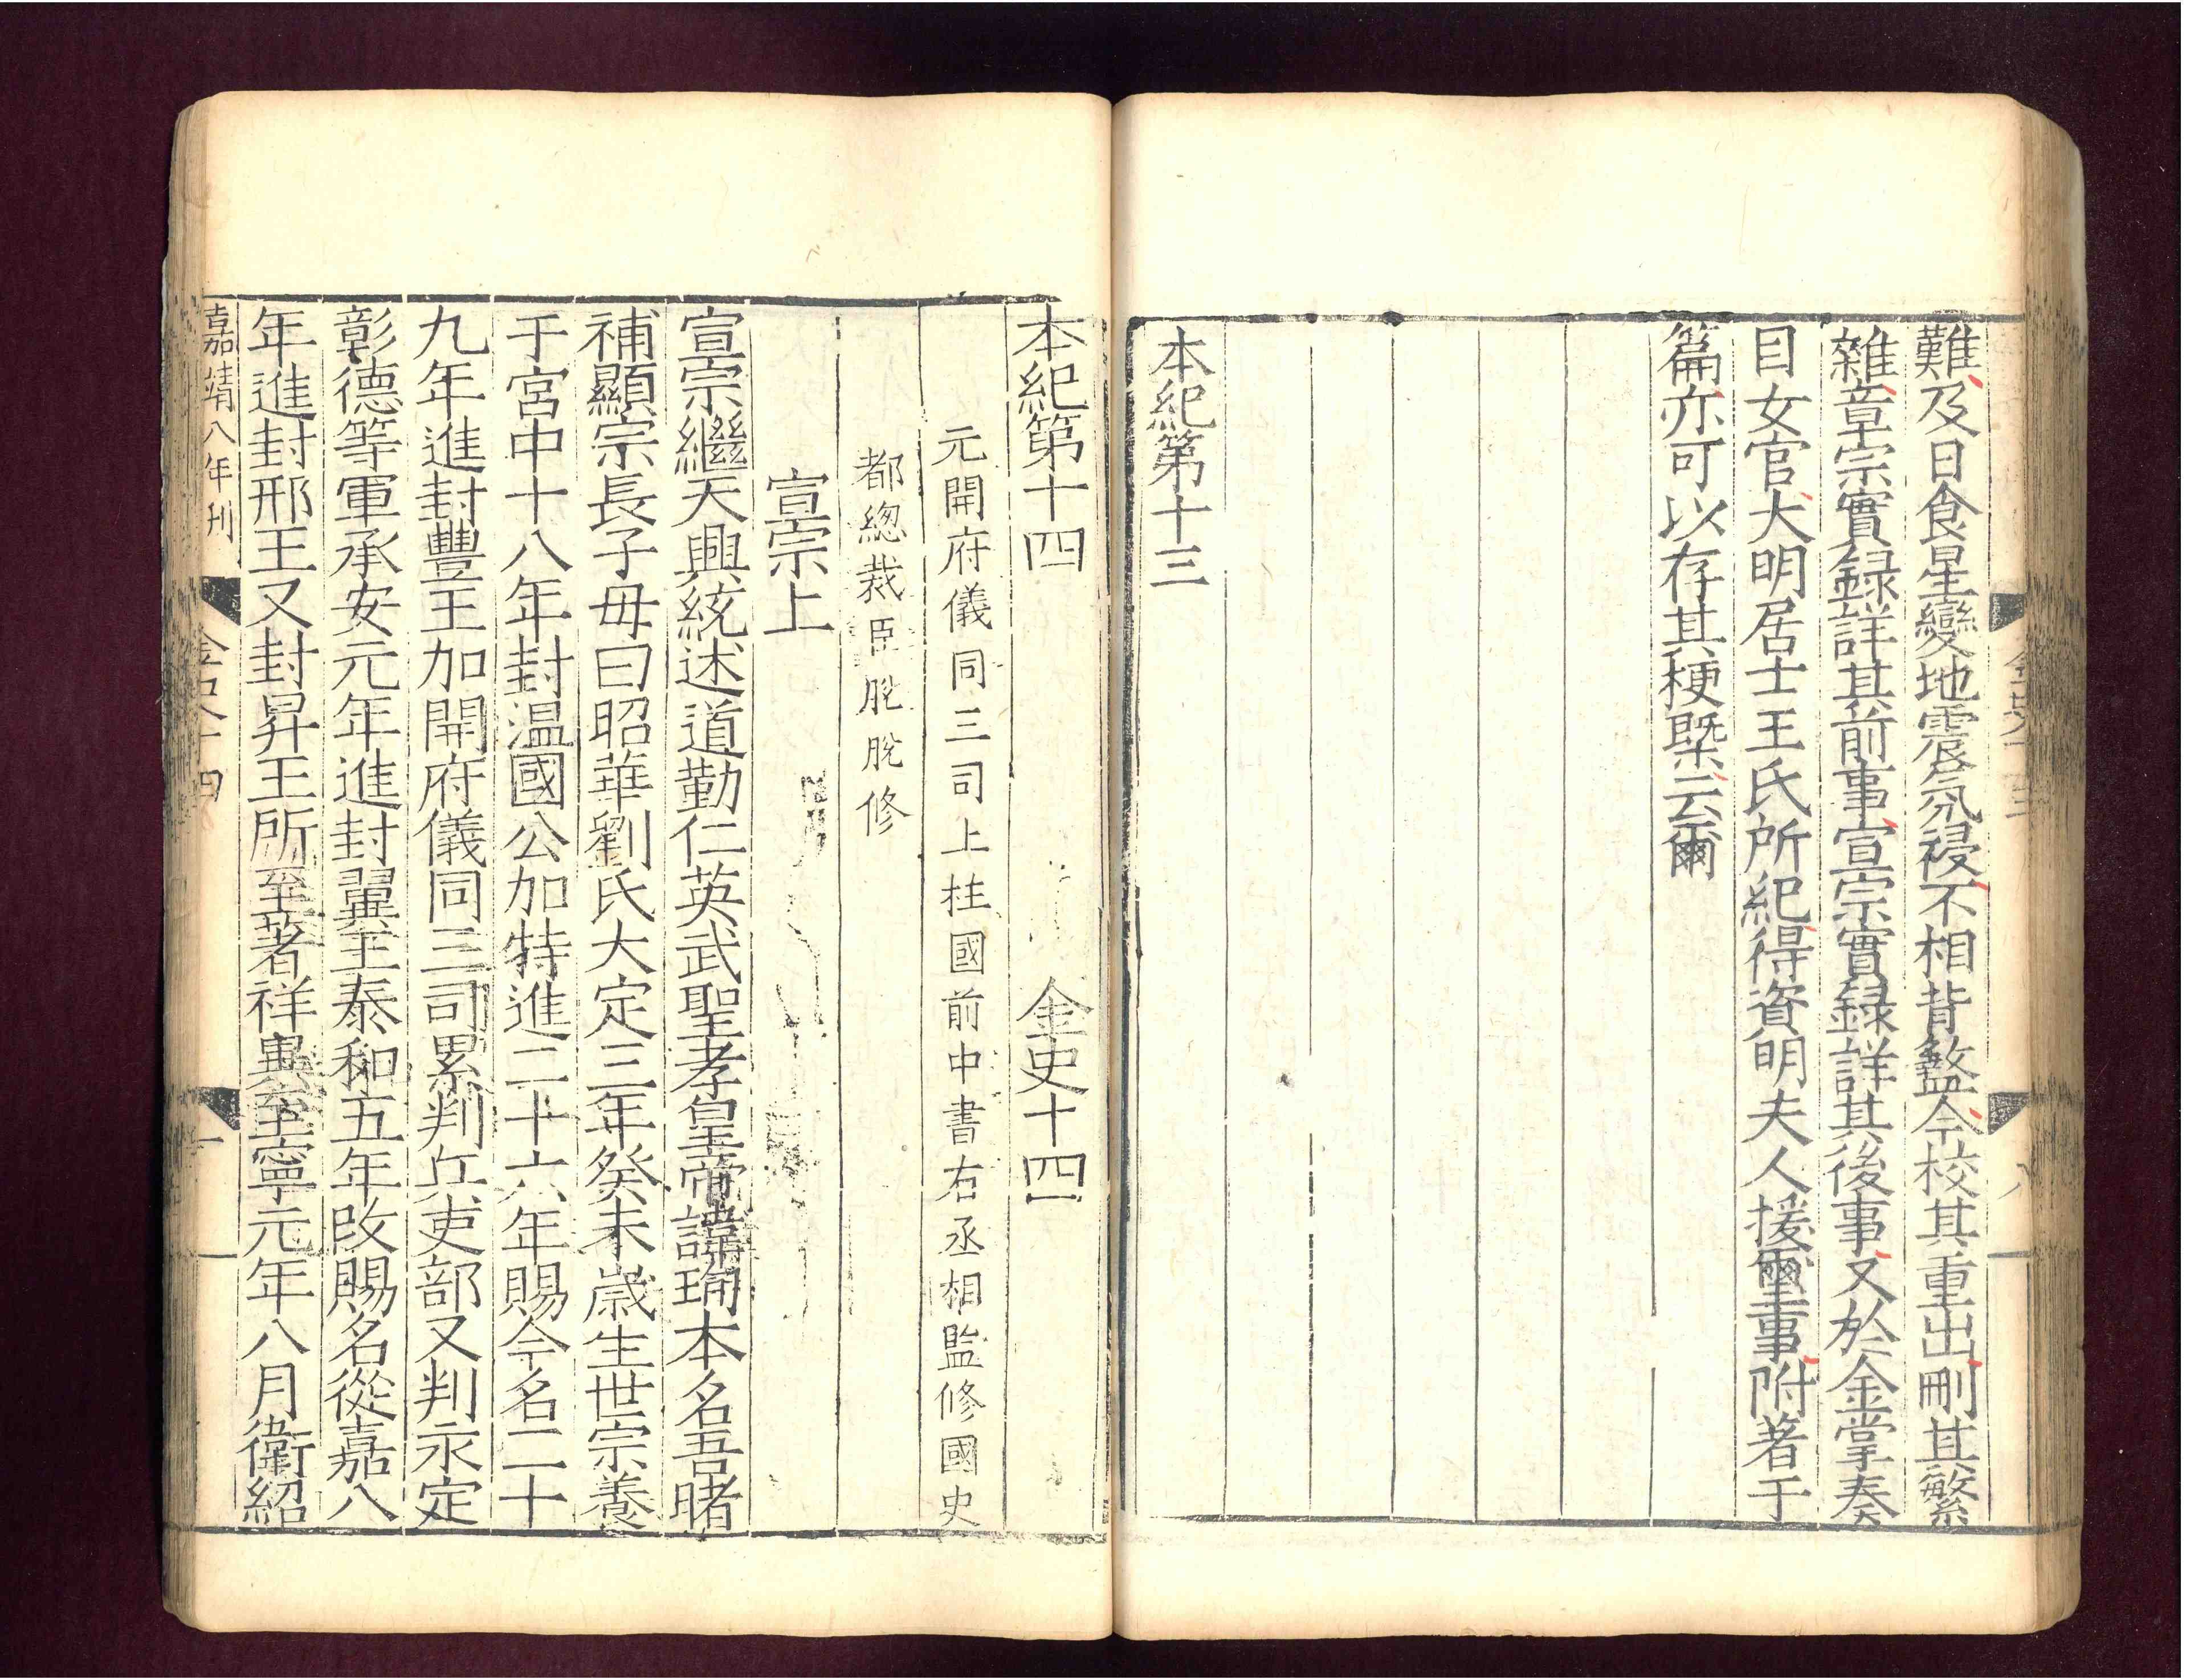 難及日食星變地震氛祲不相背盭今校其重出刪其繁
雜章宗實録詳其前事宣宗實録詳其後事又於金掌奏
目女官大明居士王氏所紀得資明夫人援璽事附著于
篇亦可以存其梗槩云爾
本紀第十三
本紀第十四 金史十四
元開府儀同三司上柱國前中書右丞相監修國史
都緫裁臣脫脫修
宣宗上
宣宗繼天興統述道勤仁英武聖孝皇帝諱珣本名吾睹
補顯宗長子母曰昭華劉氏大定三年癸未歲生世宗養
于宮中十八年封温國公加特進二十六年賜今名二十
九年進封豐王加開府儀同三司累判兵吏部又判永定
彰德等軍承安元年進封翼王泰和五年改賜名從嘉八
年進封邢王又封昇王所至著祥異至寧元年八月衛紹
嘉靖八年刊
金史十四
一